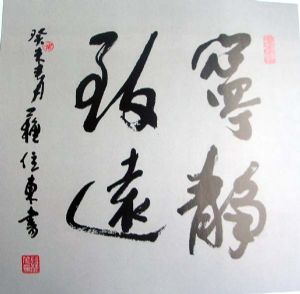 寧靜
致遠
癸未春月 蘇位東書